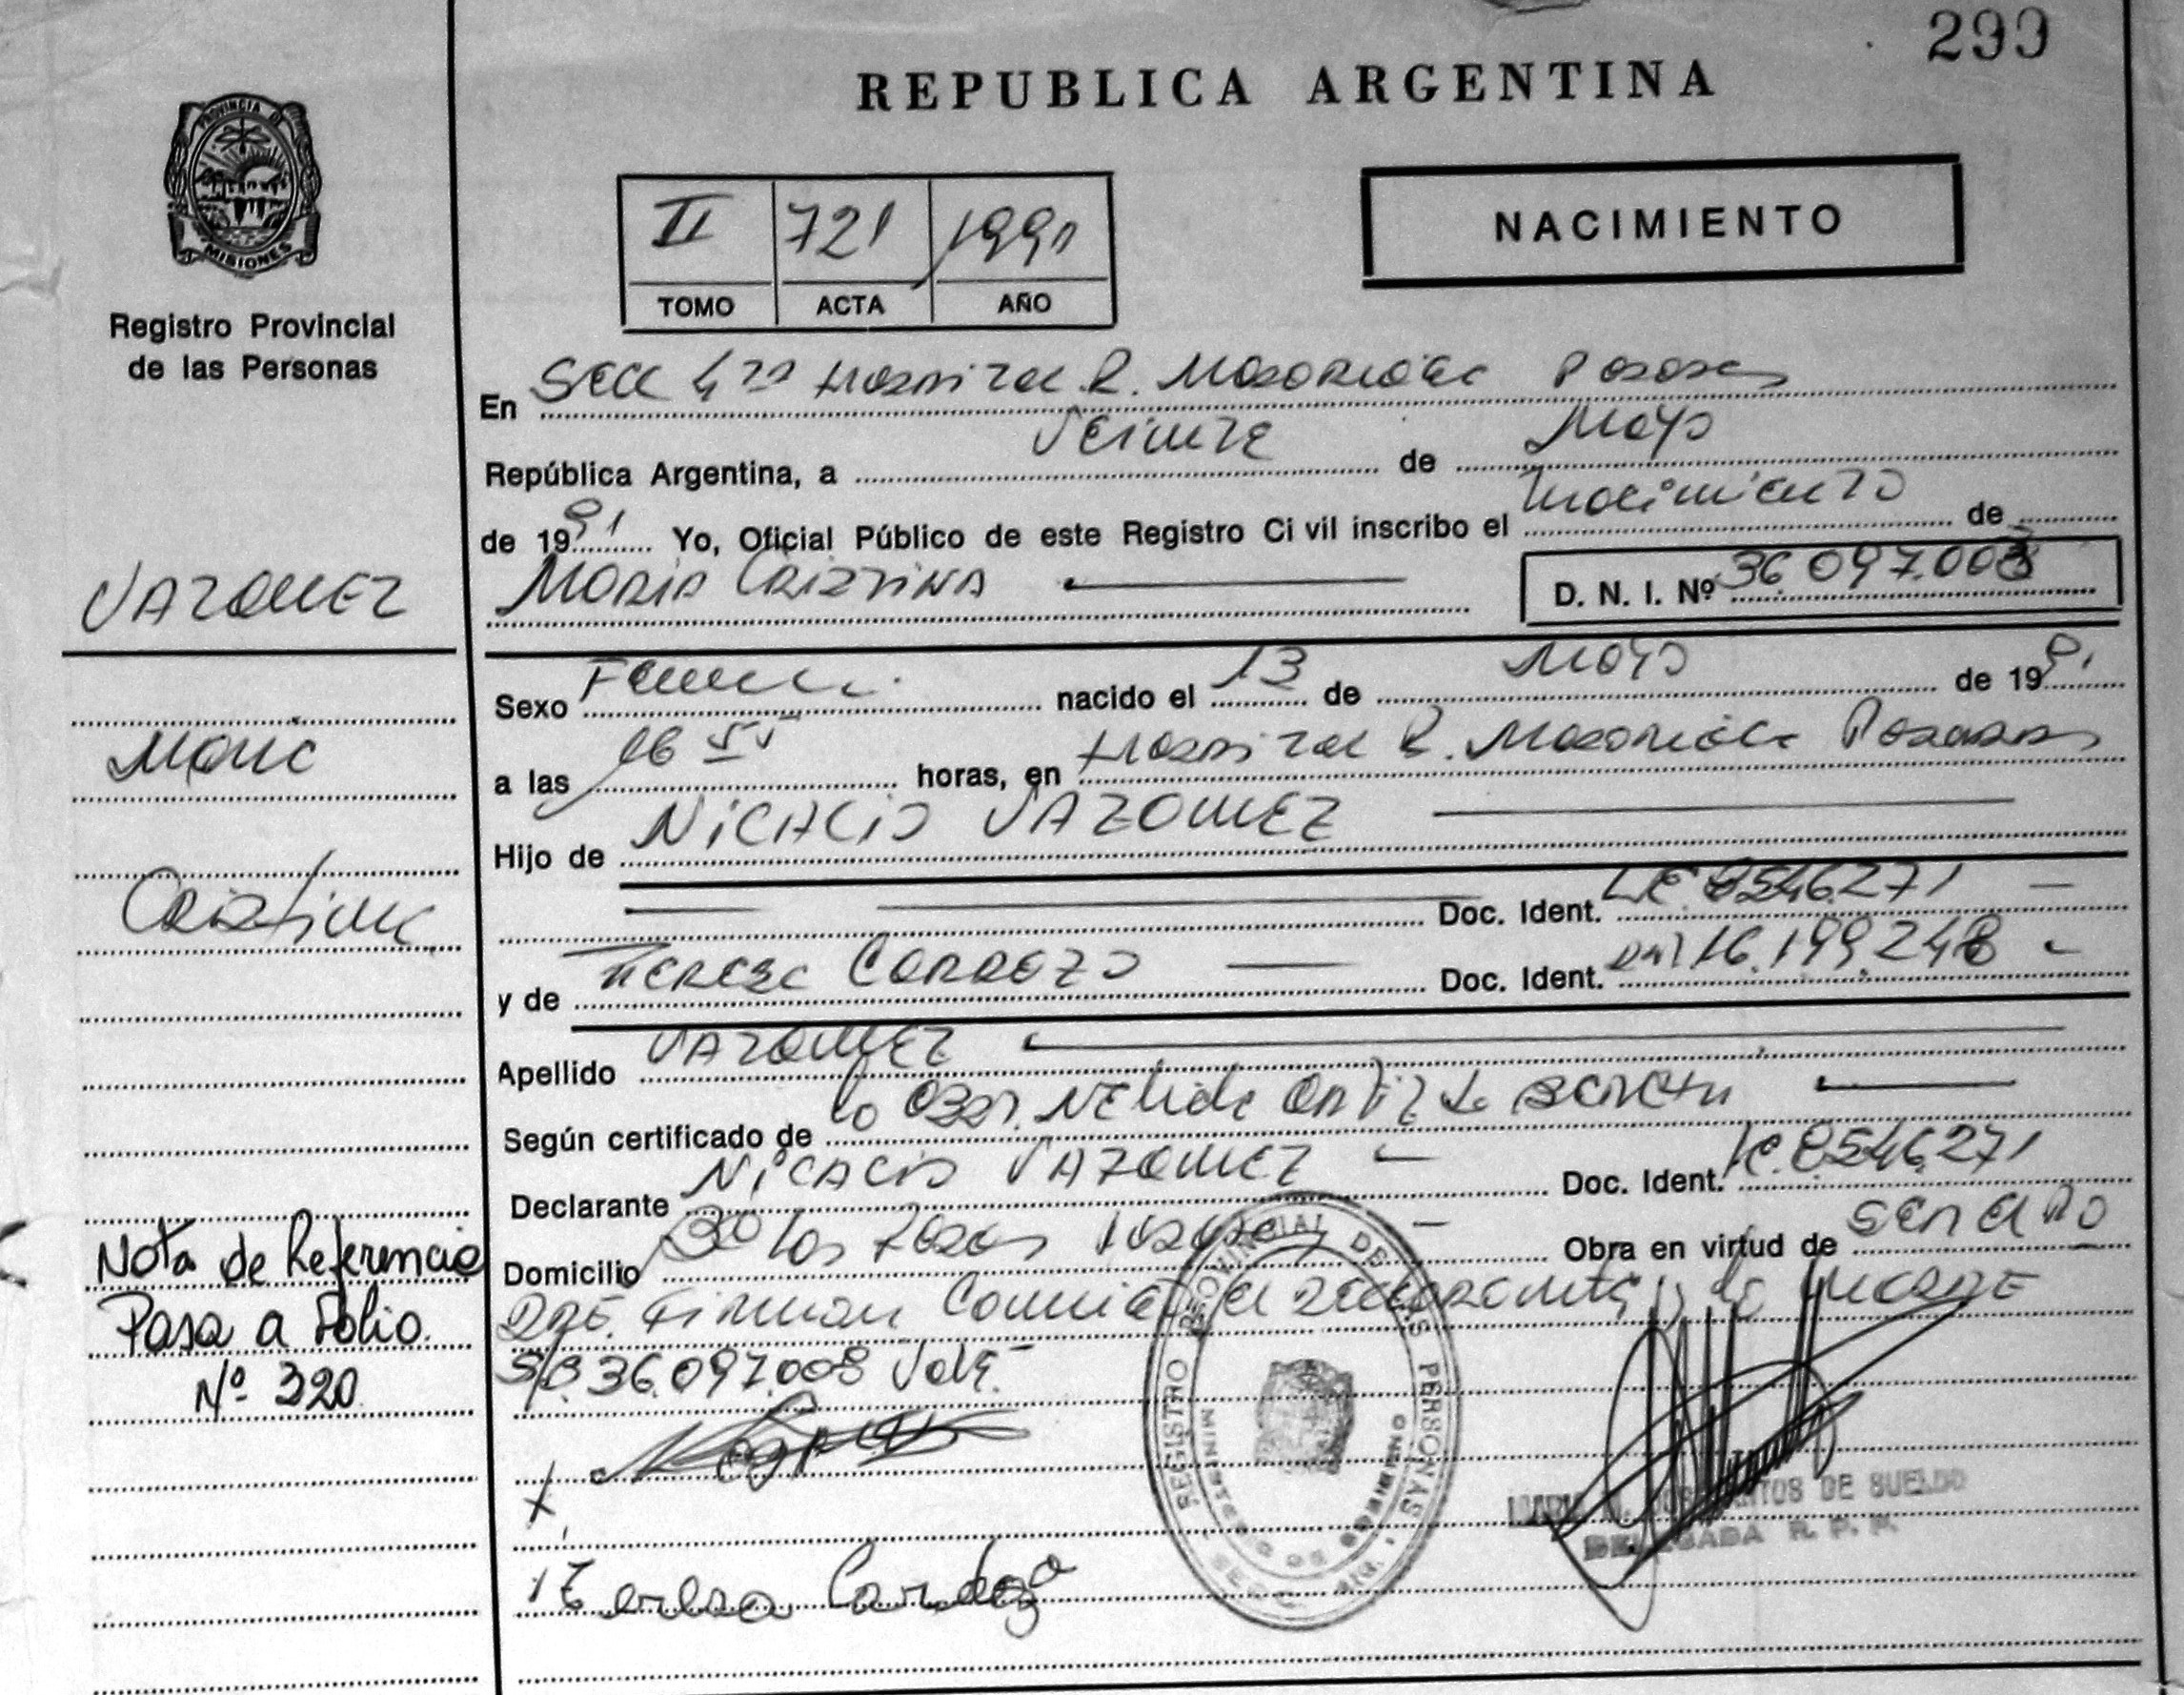 299
REPUBLICA ARGENTINA
PROVINCIA DE
MISIONES
Registro Provincial
de las Personas
II 721 1991
TOMO ACTA AÑO
NACIMIENTO
En Secc 4ta Hospital R. Madariaga Posadas
República Argentina, a Veinte de Mayo
de 1991 Yo, Oficial Público de este Registro Ci vil inscribo el nacimiento de
Maria Cristina
D. N. I. Nº 36.097.008
VAZQUEZ
Maria
Cristina
Sexo Femen. nacido el 13 de Mayo de 1991
a las 16 55 horas, en Hospital R. Madariaga Posadas
Hijo de NICACIO VAZQUEZ
Doc. Ident. LE 8546.271
y de Teresa Cardozo Doc. Ident. DNI 16.199.248
Apellido VAZQUEZ
Según certificado de la Obst. Nelida Ortiz de
Declarante Nicacio VAZQUEZ Doc. Ident. LE. 8546.271
Domicilio Obra en virtud de ser el Pad
dre. Firman Conmigo el declarante y la Madre
S/B. 36.097.008 Vale.
Nota de Referencia
Pasa a Folio.
Nº 320
Teresa Cardozo
REGISTRO PROVINCIAL DE LAS PERSONAS
MINISTERIO DE GOBIERNO
DOS SANTOS DE SUELDO
DELEGADA R. P. P.